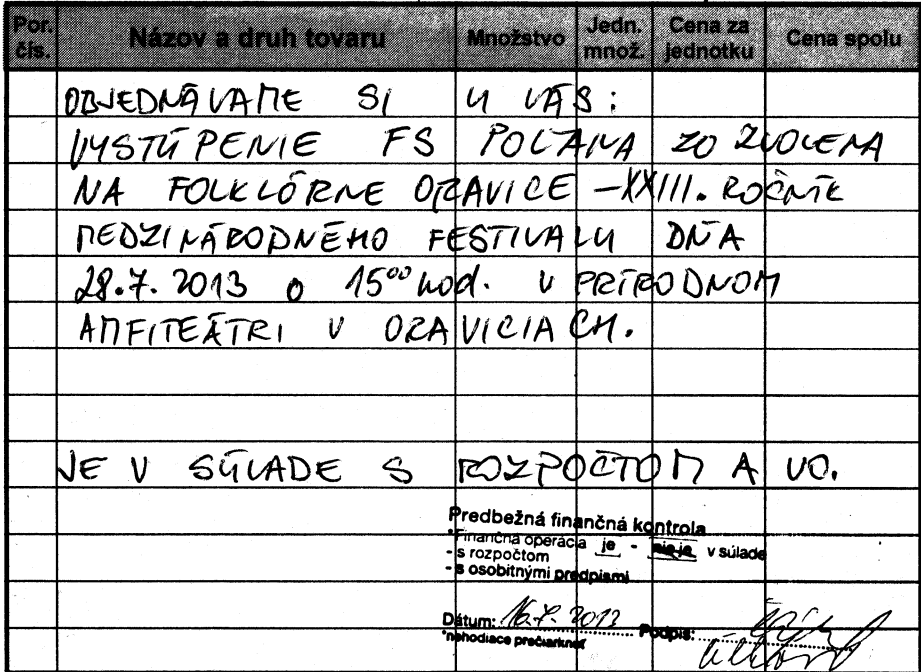 Por. čís. Názov a druh tovaru Množstvo Jedn. množ. Cena za jednotku Cena spolu
OBJEDNÁVAME SI U VÁS:
VYSTÚPENIE FS POĽANA ZO ZVOLENA
NA FOLKLÓRNE ORAVICE – XXIII. ROČNÍK
MEDZINÁRODNÉHO FESTIVALU DŇA
28.7. 2013 o 15⁰⁰ hod. V PRÍRODNOM
AMFITEÁTRI V ORAVICIACH.
JE V SÚLADE S ROZPOČTOM A VO.
Predbežná finančná kontrola
*Finančná operácia je - nie je v súlade
- s rozpočtom
- s osobitnými predpismi
Dátum: 16.7. 2013 Podpis:
*nehodiace prečiarknuť